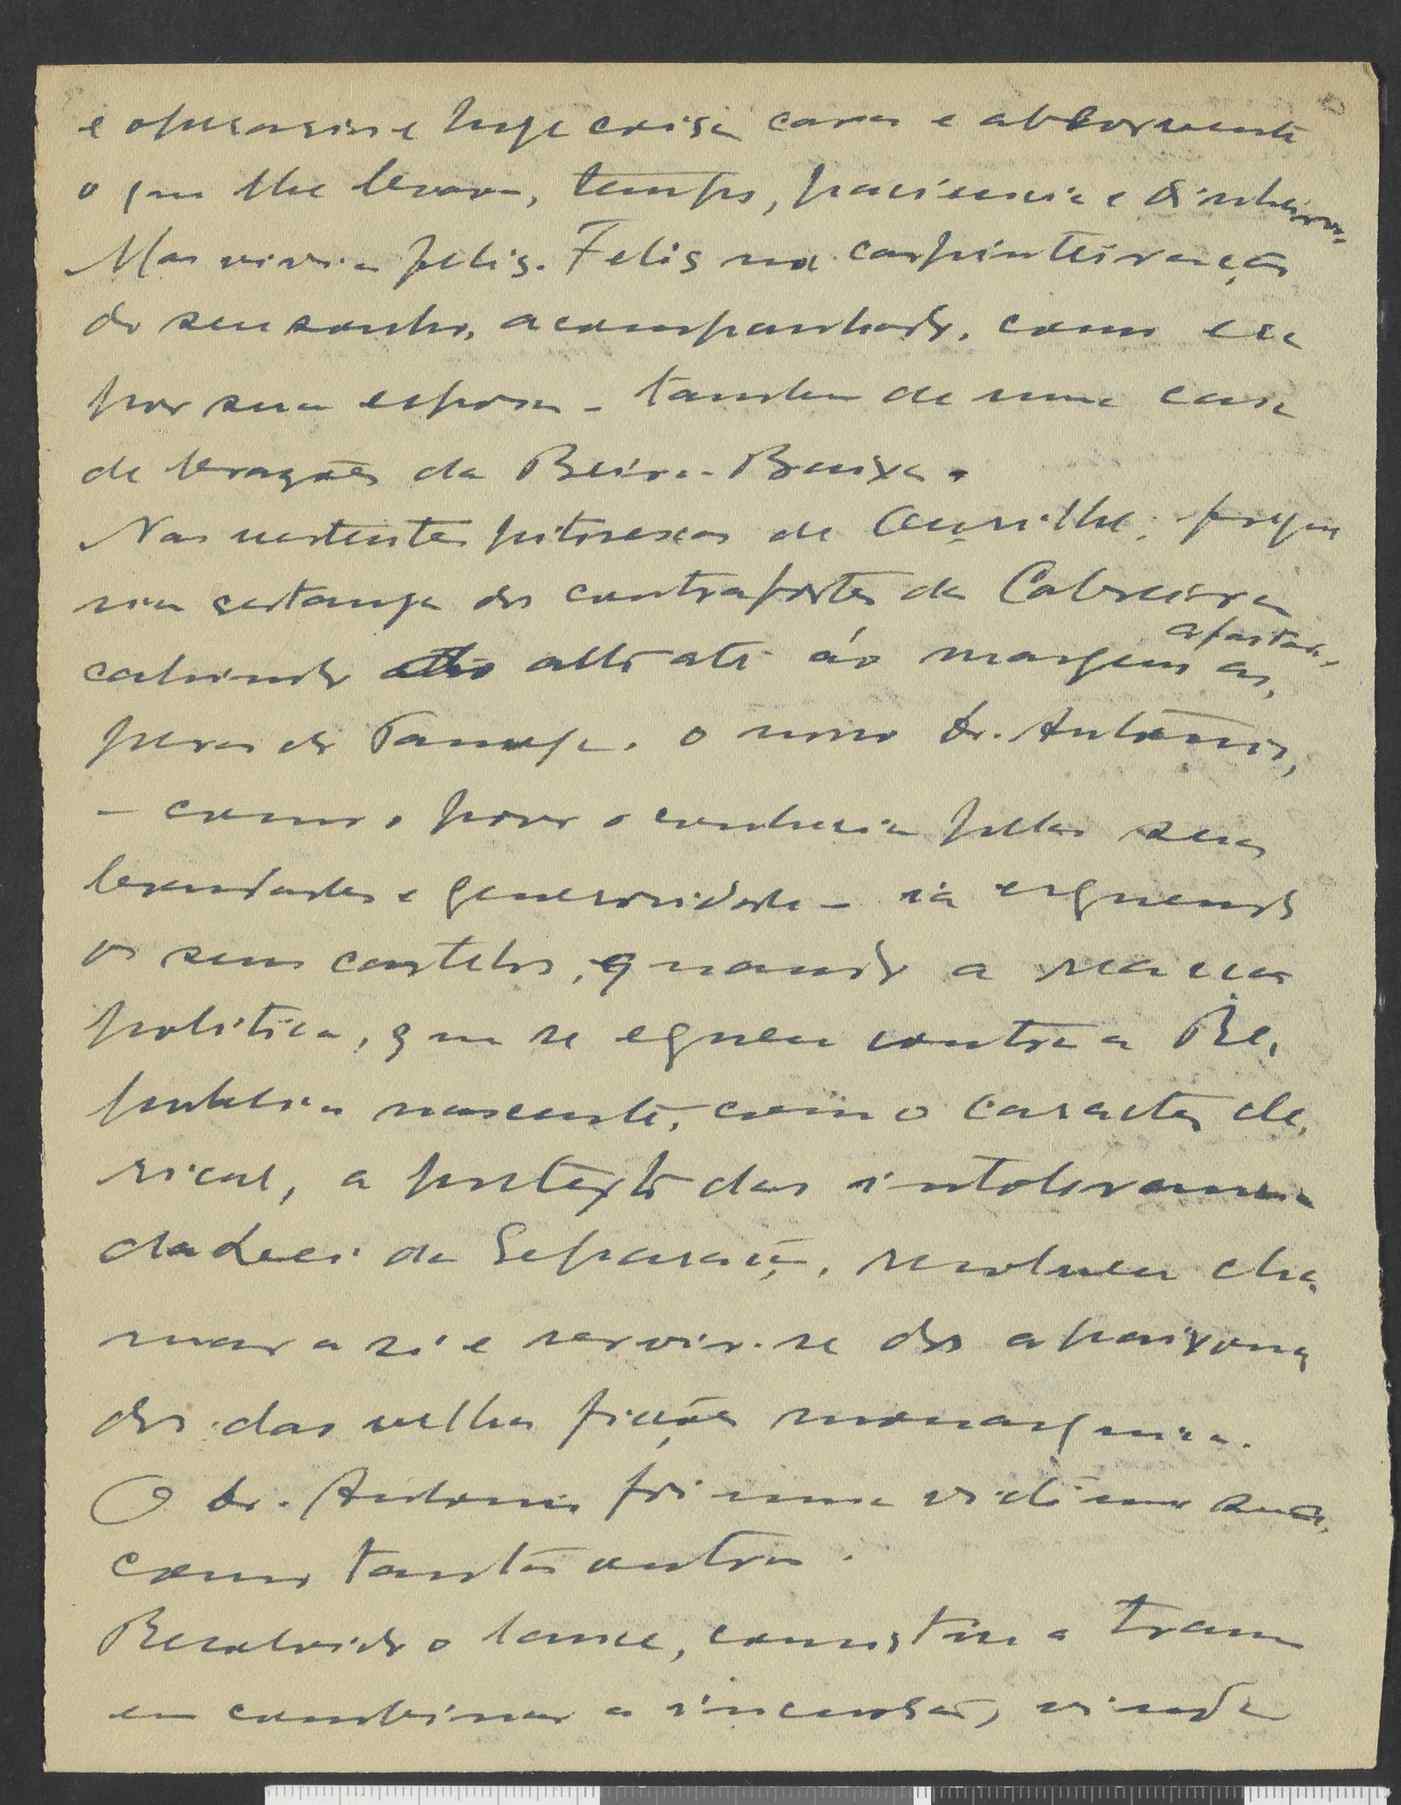 e operarios e hoje coisa cara e absorvente
o que lhe levava, tempo, paciencia e dinheiro.
Mas vivia feliz. Feliz na carpinteiração
do seu sonho, acompanhado, como era
por sua esposa - tambem de uma casa
de brazões da Beira-Baixa.
Nas vertentes pitorescas de
na dos contrafortes da Cabreira
cahindo alto até ão margem as,
afastar,
do Tamega. o novo dr. Antonio,
- como o povo o conhecia pelas suas
bondades e generosidade - ia erguendo
os seus castelos, quando a
politica, que se egueu contra a Re,
publica nascente, com o caracter cle,
rical, a pretexto das intolerancia
da Lei da Separação, resolveu cha,
mar a si e servir-se dos apaixona
dos das velhas ficções monarquica.
O dr. Antonio foi uma victima sua,
como tantas outras.
Resolvido o lance, consistiu a trama
em combinar a incursão, vinda